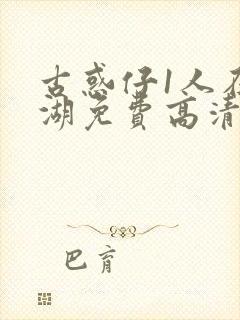 古惑仔1人在
湖免费高清
巴育